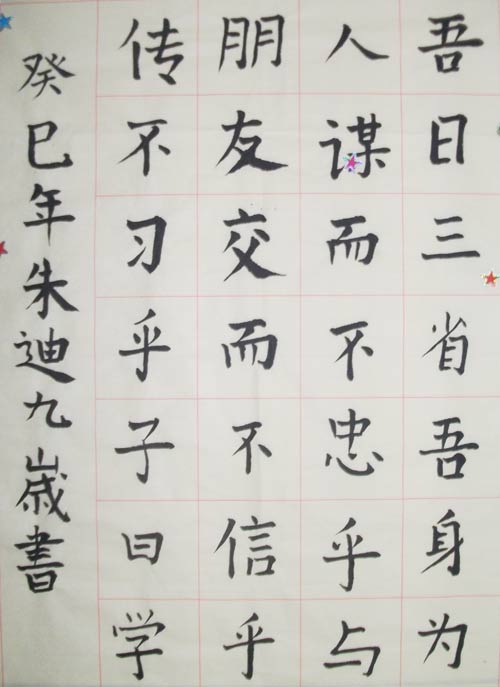 吾日三省吾身为
人谋而不忠乎与
朋友交而不信乎
传不习乎子曰学
癸巳年朱迪九歲書